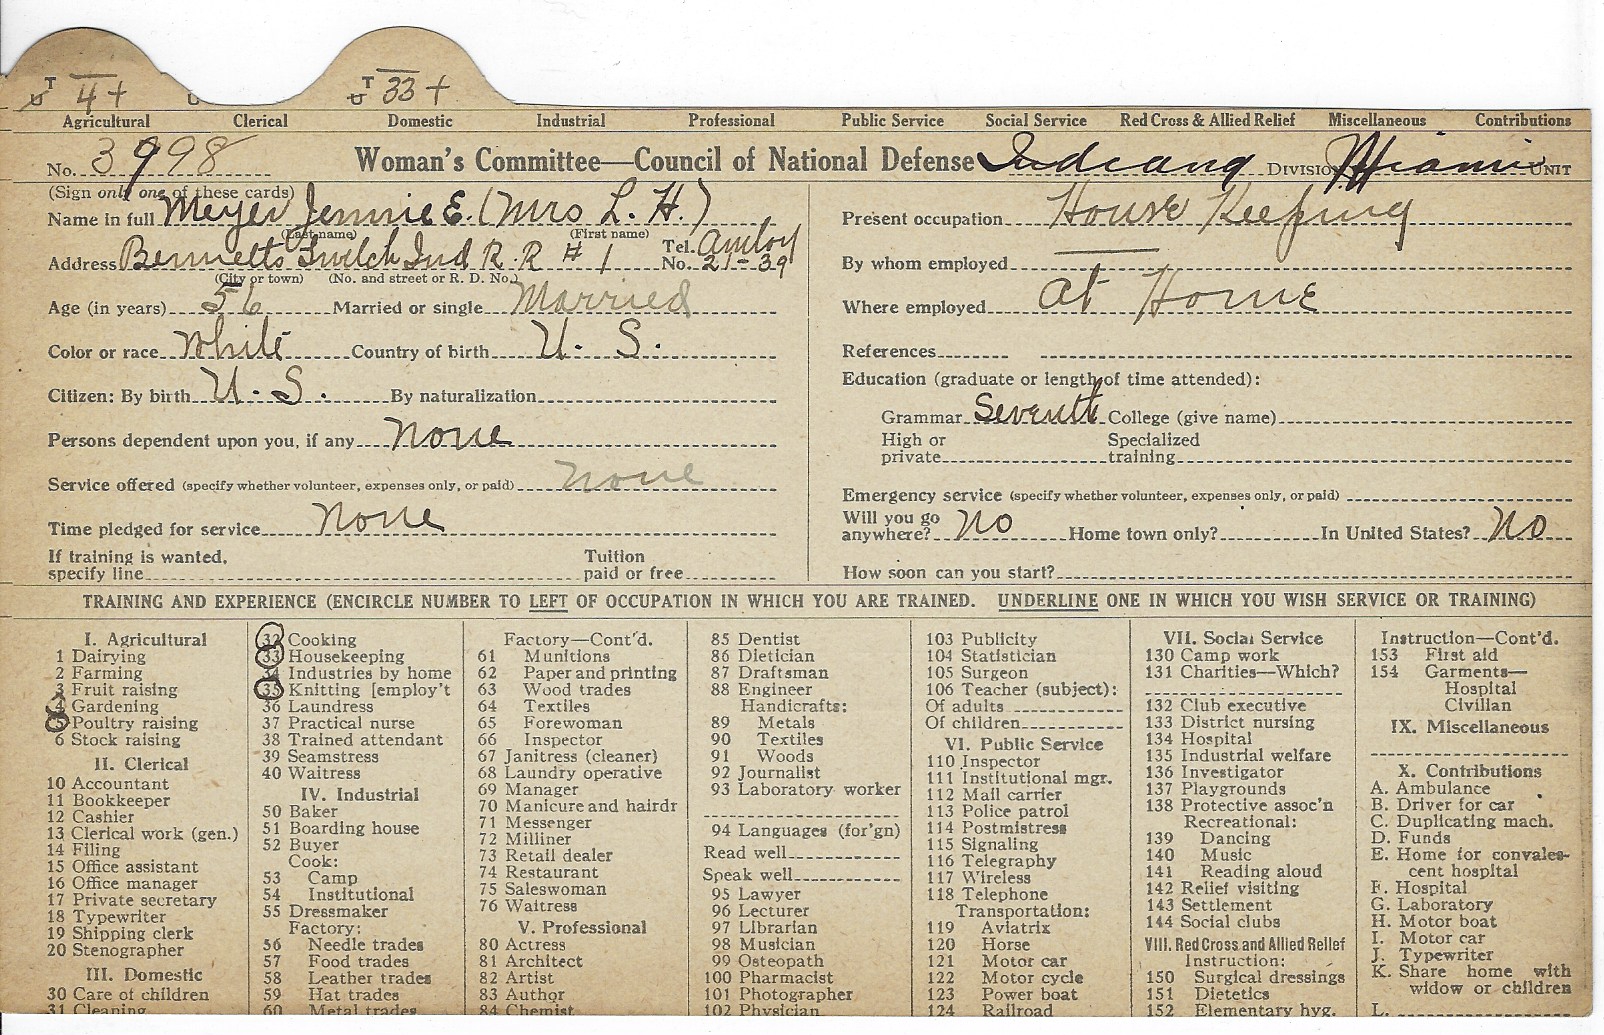 T T
U 4+ U U 33+
Agricultural Clerical Domestic Industrial Professional Public Service Social Service Red Cross & Allied Relief Miscellaneous Contributions
No. 3998 Woman's Committee—Council of National Defense Indiana Division Miami Unit
(Sign only one of these cards)
Name in full Meyer Jennie E. (Mrs L. H.)
(Last name) (First name)
Address Bennetts Switch Ind R.R #1 Tel. No. Amboy 21-39
(City or town) (No. and street or R. D. No.)
Age (in years) 56 Married or single Married
Color or race White Country of birth U. S.
Citizen: By birth U. S. By naturalization
Persons dependent upon you, if any None
Service offered (specify whether volunteer, expenses only, or paid) None
Time pledged for service None
If training is wanted, specify line Tuition paid or free
Present occupation House Keeping
By whom employed
Where employed at Home
References
Education (graduate or length of time attended):
Grammar Seventh College (give name)
High or private Specialized training
Emergency service (specify whether volunteer, expenses only, or paid)
Will you go anywhere? No Home town only? In United States? No
How soon can you start?
TRAINING AND EXPERIENCE (ENCIRCLE NUMBER TO LEFT OF OCCUPATION IN WHICH YOU ARE TRAINED. UNDERLINE ONE IN WHICH YOU WISH SERVICE OR TRAINING)
I. Agricultural
1 Dairying
2 Farming
3 Fruit raising
4 Gardening
5 Poultry raising
6 Stock raising
II. Clerical
10 Accountant
11 Bookkeeper
12 Cashier
13 Clerical work (gen.)
14 Filing
15 Office assistant
16 Office manager
17 Private secretary
18 Typewriter
19 Shipping clerk
20 Stenographer
III. Domestic
30 Care of children
31 Cleaning
32 Cooking
33 Housekeeping
34 Industries by home
35 Knitting [employ't
36 Laundress
37 Practical nurse
38 Trained attendant
39 Seamstress
40 Waitress
IV. Industrial
50 Baker
51 Boarding house
52 Buyer
Cook:
53 Camp
54 Institutional
55 Dressmaker
Factory:
56 Needle trades
57 Food trades
58 Leather trades
59 Hat trades
60 Metal trades
Factory—Cont'd.
61 Munitions
62 Paper and printing
63 Wood trades
64 Textiles
65 Forewoman
66 Inspector
67 Janitress (cleaner)
68 Laundry operative
69 Manager
70 Manicure and hairdr
71 Messenger
72 Milliner
73 Retail dealer
74 Restaurant
75 Saleswoman
76 Waitress
V. Professional
80 Actress
81 Architect
82 Artist
83 Author
84 Chemist
85 Dentist
86 Dietician
87 Draftsman
88 Engineer
Handicrafts:
89 Metals
90 Textiles
91 Woods
92 Journalist
93 Laboratory worker
94 Languages (for'gn)
Read well
Speak well
95 Lawyer
96 Lecturer
97 Librarian
98 Musician
99 Osteopath
100 Pharmacist
101 Photographer
102 Physician
103 Publicity
104 Statistician
105 Surgeon
106 Teacher (subject):
Of adults
Of children
VI. Public Service
110 Inspector
111 Institutional mgr.
112 Mail carrier
113 Police patrol
114 Postmistress
115 Signaling
116 Telegraphy
117 Wireless
118 Telephone
Transportation:
119 Aviatrix
120 Horse
121 Motor car
122 Motor cycle
123 Power boat
124 Railroad
VII. Social Service
130 Camp work
131 Charities—Which?
132 Club executive
133 District nursing
134 Hospital
135 Industrial welfare
136 Investigator
137 Playgrounds
138 Protective assoc'n
Recreational:
139 Dancing
140 Music
141 Reading aloud
142 Relief visiting
143 Settlement
144 Social clubs
VIII. Red Cross and Allied Relief
Instruction:
150 Surgical dressings
151 Dietetics
152 Elementary hyg.
Instruction—Cont'd.
153 First aid
154 Garments—
Hospital
Civilian
IX. Miscellaneous
X. Contributions
A. Ambulance
B. Driver for car
C. Duplicating mach.
D. Funds
E. Home for convales-
cent hospital
F. Hospital
G. Laboratory
H. Motor boat
I. Motor car
J. Typewriter
K. Share home with
widow or children
L.